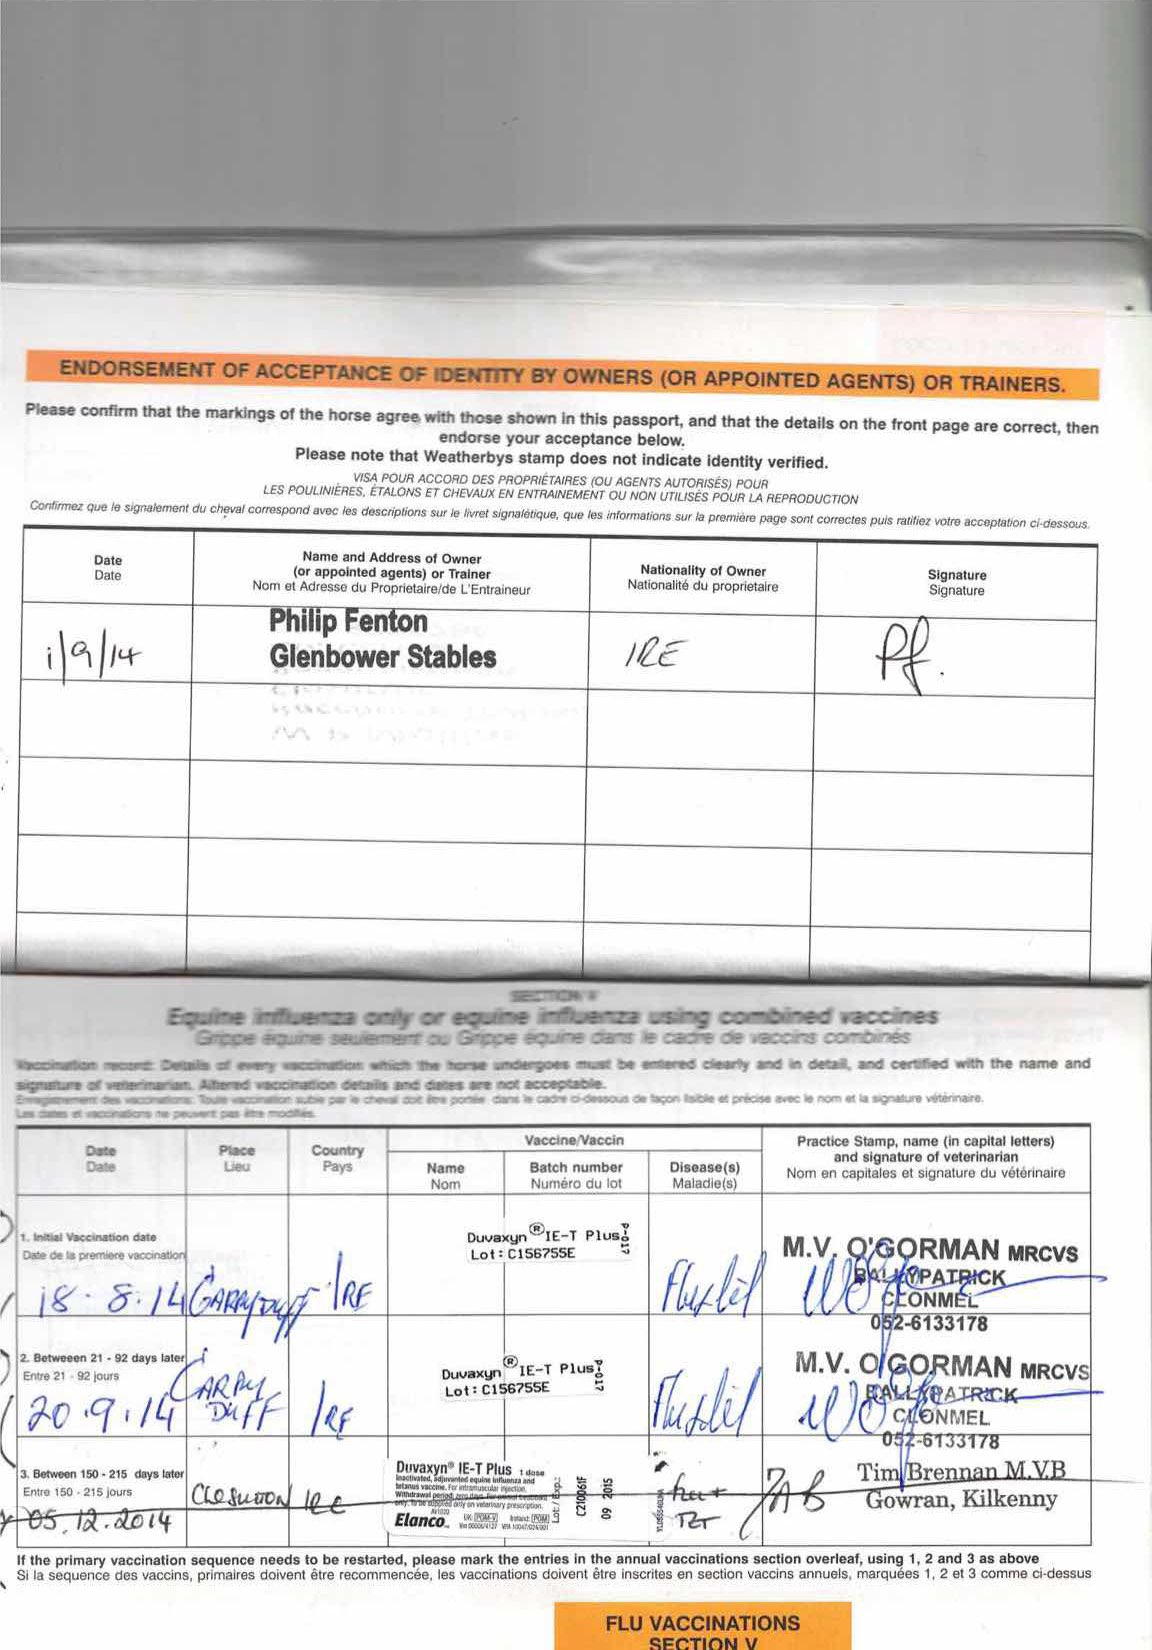 ENDORSEMENT OF ACCEPTANCE OF IDENTITY BY OWNERS (OR APPOINTED AGENTS) OR TRAINERS.
Please confirm that the markings of the horse agree with those shown in this passport, and that the details on the front page are correct, then
endorse your acceptance below.
Please note that Weatherbys stamp does not indicate identity verified.
VISA POUR ACCORD DES PROPRIÉTAIRES (OU AGENTS AUTORISÉS) POUR
LES POULINIÈRES, ÉTALONS ET CHEVAUX EN ENTRAINEMENT OU NON UTILISÉS POUR LA REPRODUCTION
Confirmez que le signalement du cheval correspond avec les descriptions sur le livret signalétique, que les informations sur la première page sont correctes puis ratifiez votre acceptation ci-dessous.
Date
Date
Name and Address of Owner
(or appointed agents) or Trainer
Nom et Adresse du Proprietaire/de L'Entraineur
Nationality of Owner
Nationalité du proprietaire
Signature
Signature
1/9/14
Philip Fenton
Glenbower Stables
IRE
Pf.
SECTION V
Equine influenza only or equine influenza using combined vaccines
Grippe équine seulement ou Grippe équine dans le cadre de vaccins combinés
Vaccination record: Details of every vaccination which the horse undergoes must be entered clearly and in detail, and certified with the name and
signature of veterinarian. Altered vaccination details and dates are not acceptable.
Enregistrement des vaccinations: Toute vaccination subie par le cheval doit être portée dans le cadre ci-dessous de façon lisible et précise avec le nom et la signature vétérinaire.
Les dates et vaccinations ne peuvent pas être modifiés.
Date
Date
Place
Lieu
Country
Pays
Vaccine/Vaccin
Name
Nom
Batch number
Numéro du lot
Disease(s)
Maladie(s)
Practice Stamp, name (in capital letters)
and signature of veterinarian
Nom en capitales et signature du vétérinaire
1. Initial Vaccination date
Date de la premiere vaccination
18.8.14
GARRYDUFF
IRE
Duvaxyn® IE-T Plus
Lot: C156755E
P-017
M.V. O'GORMAN MRCVS
BALLYPATRICK
CLONMEL
052-6133178
2. Betweeen 21 - 92 days later
Entre 21 - 92 jours
20.9.14
GARRY
DUFF
IRE
Duvaxyn® IE-T Plus
Lot: C156755E
P-017
M.V. O'GORMAN MRCVS
BALLYPATRICK
CLONMEL
052-6133178
3. Between 150 - 215 days later
Entre 150 - 215 jours
05.12.2014
Closutton
IRE
Duvaxyn® IE-T Plus 1 dose
Inactivated, adjuvanted equine influenza and
tetanus vaccine. For intramuscular injection.
Elanco
Lot / Exp.:
C210061F
09 2015
Flu +
TET
Tim Brennan M.V.B
Gowran, Kilkenny
If the primary vaccination sequence needs to be restarted, please mark the entries in the annual vaccinations section overleaf, using 1, 2 and 3 as above
Si la sequence des vaccins, primaires doivent être recommencée, les vaccinations doivent être inscrites en section vaccins annuels, marquées 1, 2 et 3 comme ci-dessus
FLU VACCINATIONS
SECTION V